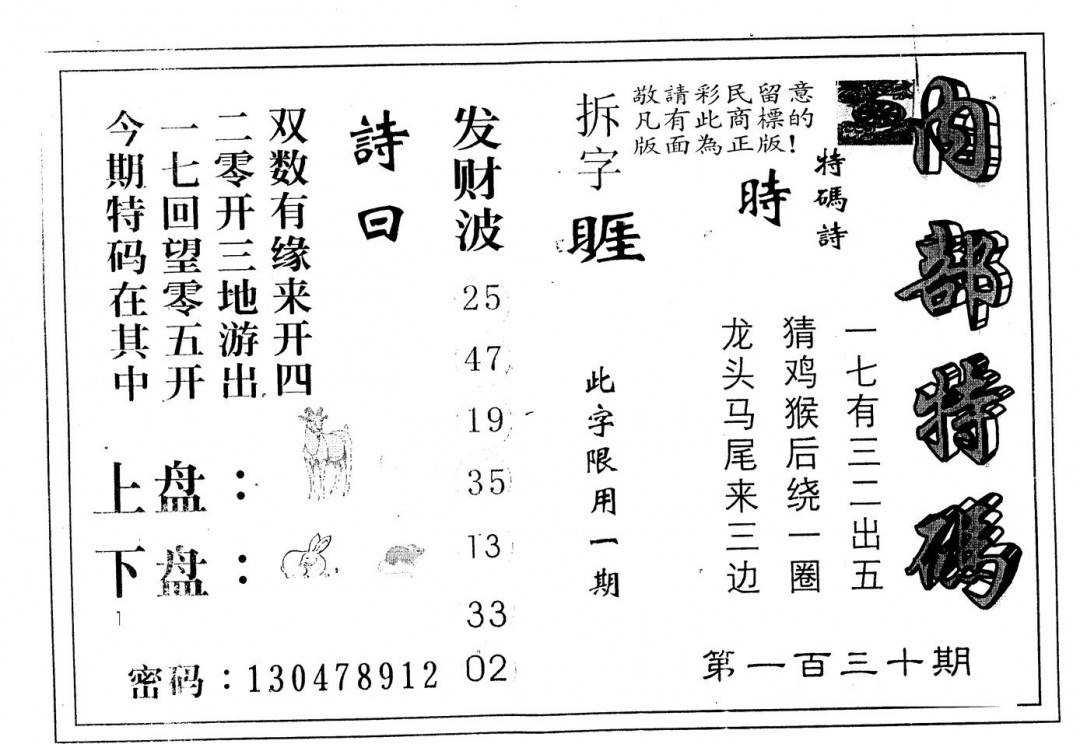 内部特碼
第一百三十期
敬請彩民留意
凡有此商標的
版面為正版!
特碼詩
時
一七有三二出五
猜鸡猴后绕一圈
龙头马尾来三边
拆字
此字限用一期
发财波
25
47
19
35
13
33
02
詩曰
双数有缘来开四
二零开三地游出
一七回望零五开
今期特码在其中
上盘：
下盘：
密码：130478912